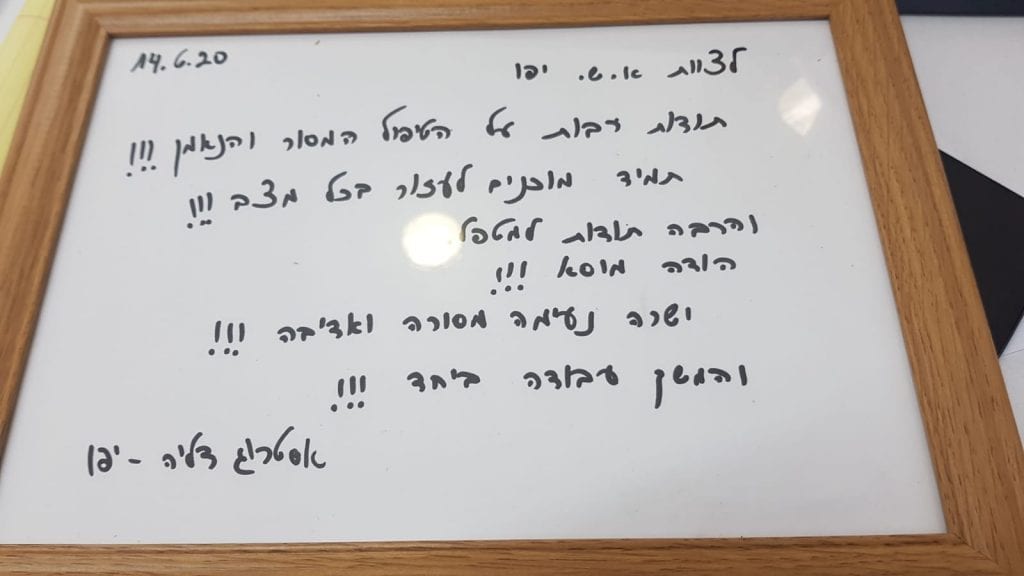 14.6.20
לצוות א.ש. יפו
תודות רבות על הטיפול המסור והנאמן !!!
תמיד מוכנים לעזור בכל מצב !!!
והרבה תודות למטפל
הודה מוסא !!!
ישרה נעימה מסורה ואדיבה !!!
והמשך עבודה ביחד !!!
אסטרוג דליה - יפו